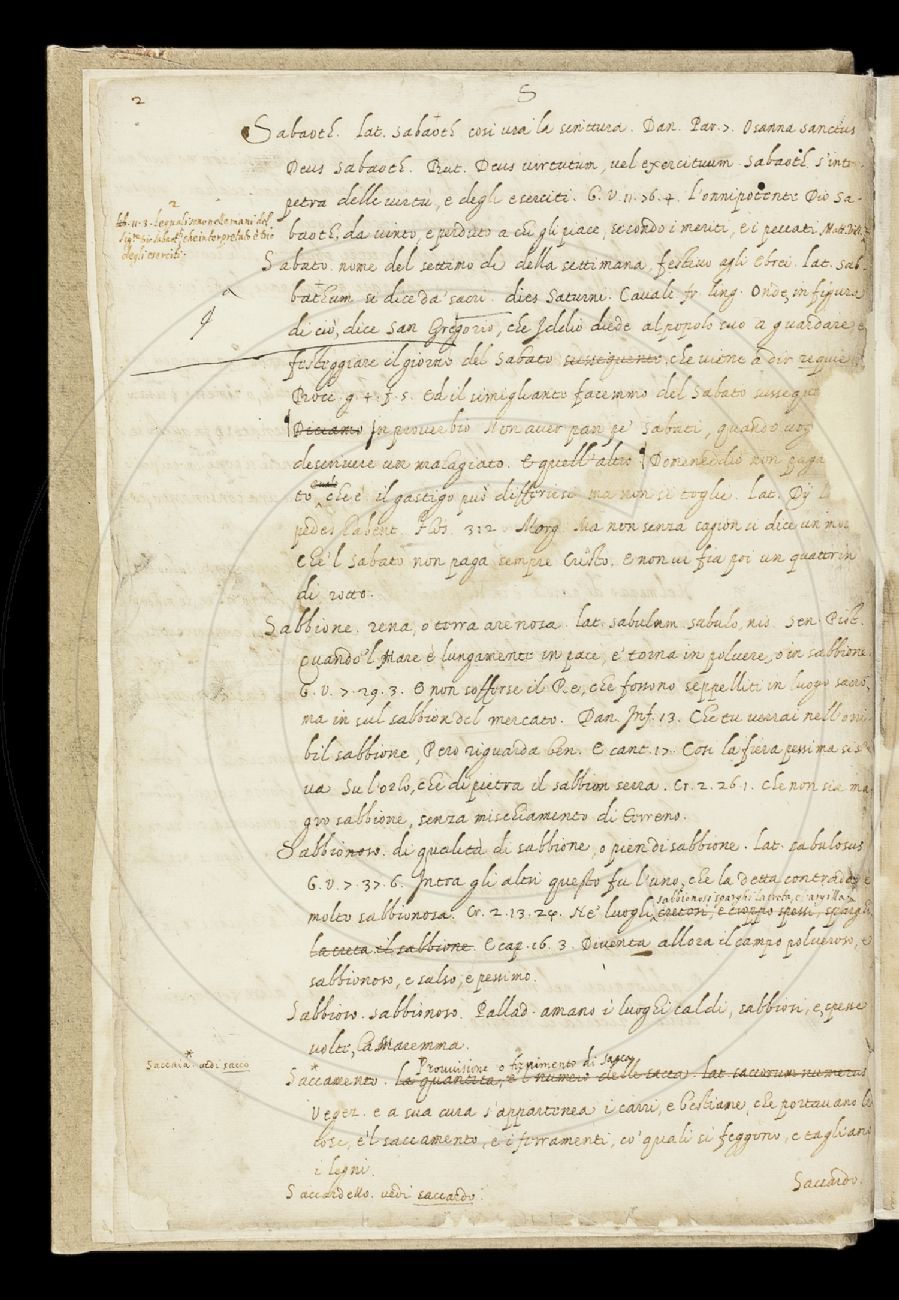 2
S
Sabaoth. lat. sabaoth cosi usa la scrittura. Dan. Par. 7. Osanna sanctus
Deus sabaoth. But. Deus virtutum, vel exercituum. Sabaoth s'inter-
petra delle virtù, e degli eserciti. G. V. 11. 76. 4. l'onnipotente Dio sa-
baoth, da vinto, e perduto a chi gli piace, secondo i meriti, e i peccati.
2
lib. 11. 3. le quali sono nelle mani del
Sig.re Dio sabaoth, che interpretato è Dio
degli eserciti.
Sabato. nome del settimo dì della settimana, festivo agli Ebrei. lat. sab-
bathum si dice da' sacri. dies Saturni. Cavalc. fr. ling. Onde, in figura
di ciò, dice san Gregorio, che Iddio diede al popolo suo a guardare, e
festeggiare il giorno del sabato susseguente, che viene a dir requie
g. 4. f. 5. Ed il simigliante facemmo del sabato sussegu
Diciamo In proverbio Non aver pan pe' sabati, quando vog
descrivere un malagiato. E quell'altro Domeneddio non paga
to, che è il gastigo può differirsi ma non si toglie. lat. Dij
pedes habent. Flos. 312. Morg. Ma non senza cagion si dice un mo
Che'l sabato non paga sempre Cristo. E non vi fia poi un quattrin
di rotto.
Sabbione. rena, o terra arenosa. lat. sabulum sabulo, nis. Sen. Pist.
Quando'l Mare è lungamente in pace, e' torna in polvere, o in sabbione.
G. V. 7. 29. 3. E non sofferse il Re, che fossono seppelliti in luogo sacro,
ma in sul sabbion del mercato. Dan. Inf. 13. Che tu verrai nell'orri
bil sabbione, Però riguarda ben. E cant. 17. Così la fiera pessima si s
va Su l'orlo, che di pietra il sabbion serra. Cr. 2. 26. 1. Che non sia ma
gro sabbione, senza mischiamento di terreno.
Sabbionoso. di qualità di sabbione, o pien di sabbione. lat. sabulosus
G. V. 7. 37. 6. Intra gli altri questo fu l'uno, che la detta contrada è
sabbionosi sparghi la creta, e l'argilla
molto sabbionosa. Cr. 2. 13. 24. Ne' luoghi cretosi, e troppo spessi, sparghi
la creta el sabbione. E cap. 16. 3. Diventa allora il campo polveroso, e
sabbionoso, e salso, e pessimo.
Sabbioso. sabbionoso. Pallad. amano i luoghi caldi, sabbiosi, e, spesse
volte, la Maremma.
Saccaia. vedi sacco
Provvisione o fornimento di sacca
Saccamento. la quantità, e'l numero delle sacca. lat. saccorum numerus
Vegez. e a sua cura s'appartenea i carri, e bestiame, che portavano le
cose, e'l saccamento, e i ferramenti, co' quali si feggono, e tagliano
i legni.
Saccardello. vedi saccardo.
Saccardo.